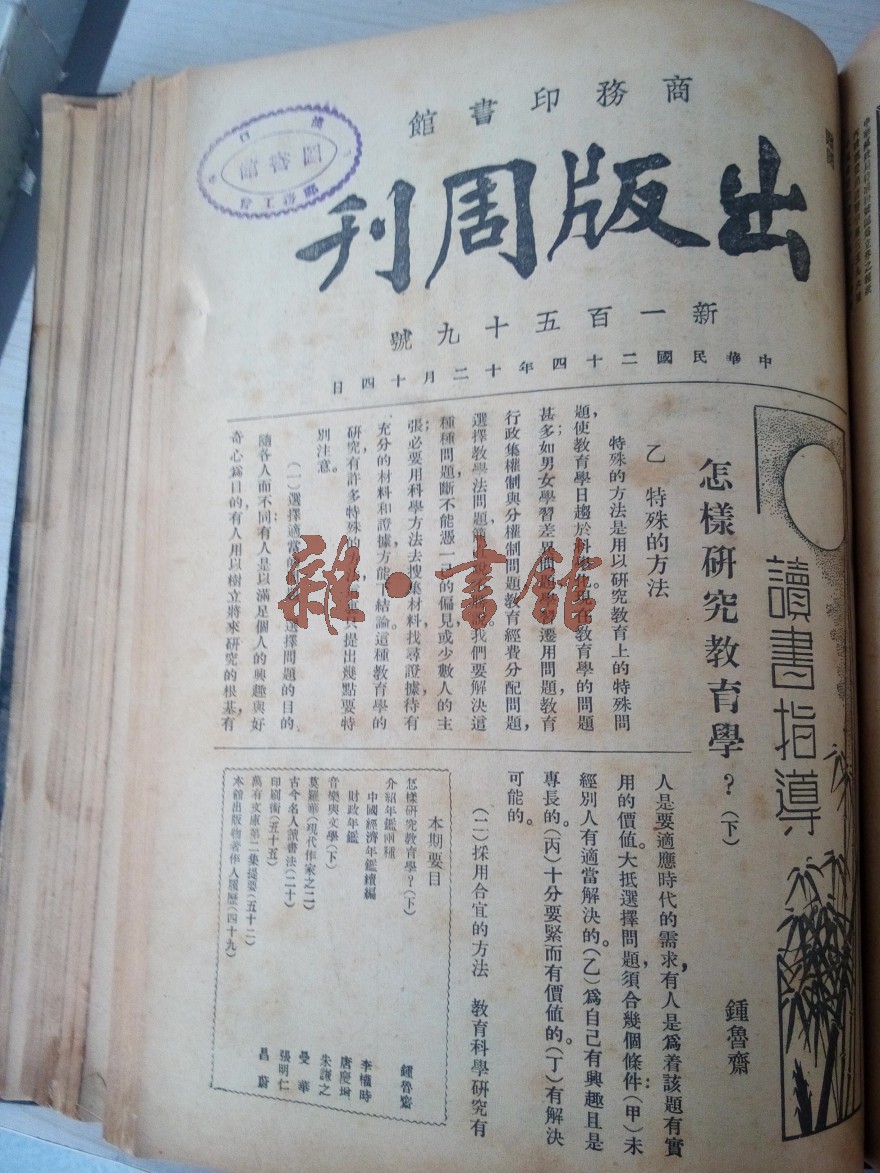 商務印書館
出版周刊
新一百五十九號
中華民國二十四年十二月十四日
圖書館
讀書指導
怎樣研究教育學？（下）
鍾魯齋
乙　特殊的方法
特殊的方法是用以研究教育上的特殊問
題，使教育學日趨於科學化。現在教育學的問題
甚多；如男女學習差異問題，學習遷用問題，教育
行政集權制與分權制問題，教育經費分配問題，
選擇教學法問題，等
我們要解決這
種種問題，斷不能憑一己的偏見或少數人的主
張；必要用科學方法去搜集材料，找尋證據，待有
充分的材料和證據，方能下結論。這種教育學的
研究，有許多特殊的
提出幾點要特
別注意。
（一）選擇適當的
選擇問題的目的
隨各人而不同，有人是以滿足個人的興趣與好
奇心爲目的，有人用以樹立將來研究的根基，有
人是要適應時代的需求，有人是爲着該題有實
用的價值。大抵選擇問題，須合幾個條件：（甲）未
經別人有適當解決的。（乙）爲自己有興趣且是
專長的。（丙）十分要緊而有價值的。（丁）有解決
可能的。
（二）採用合宜的方法　教育科學研究有
本期要目
怎樣研究教育學？（下）　鍾魯齋
介紹年鑑兩種
中國經濟年鑑續編　李權時
財政年鑑　唐慶增
音樂與文學（下）　朱謙之
莫羅華（現代作家之二）　曼華
古今名人讀書法（二十）　張明仁
印刷術（五十五）　昌蔚
萬有文庫第二集提要（五十二）
本館出版物著作人履歷（四十九）
雜·書館